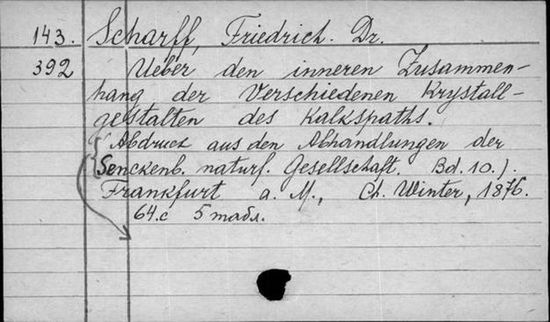 143. Scharff, Friedrich. Dr.
392 Ueber den inneren Zusammen-
hang der Verschiedenen Krystall-
gestalten des Kalkspaths.
(Abdruck aus den Abhandlungen der
Senckenb. naturf. Gesellschaft. Bd. 10.).
Frankfurt a. M., Ch. Winter, 1876.
64.с 5 табл.